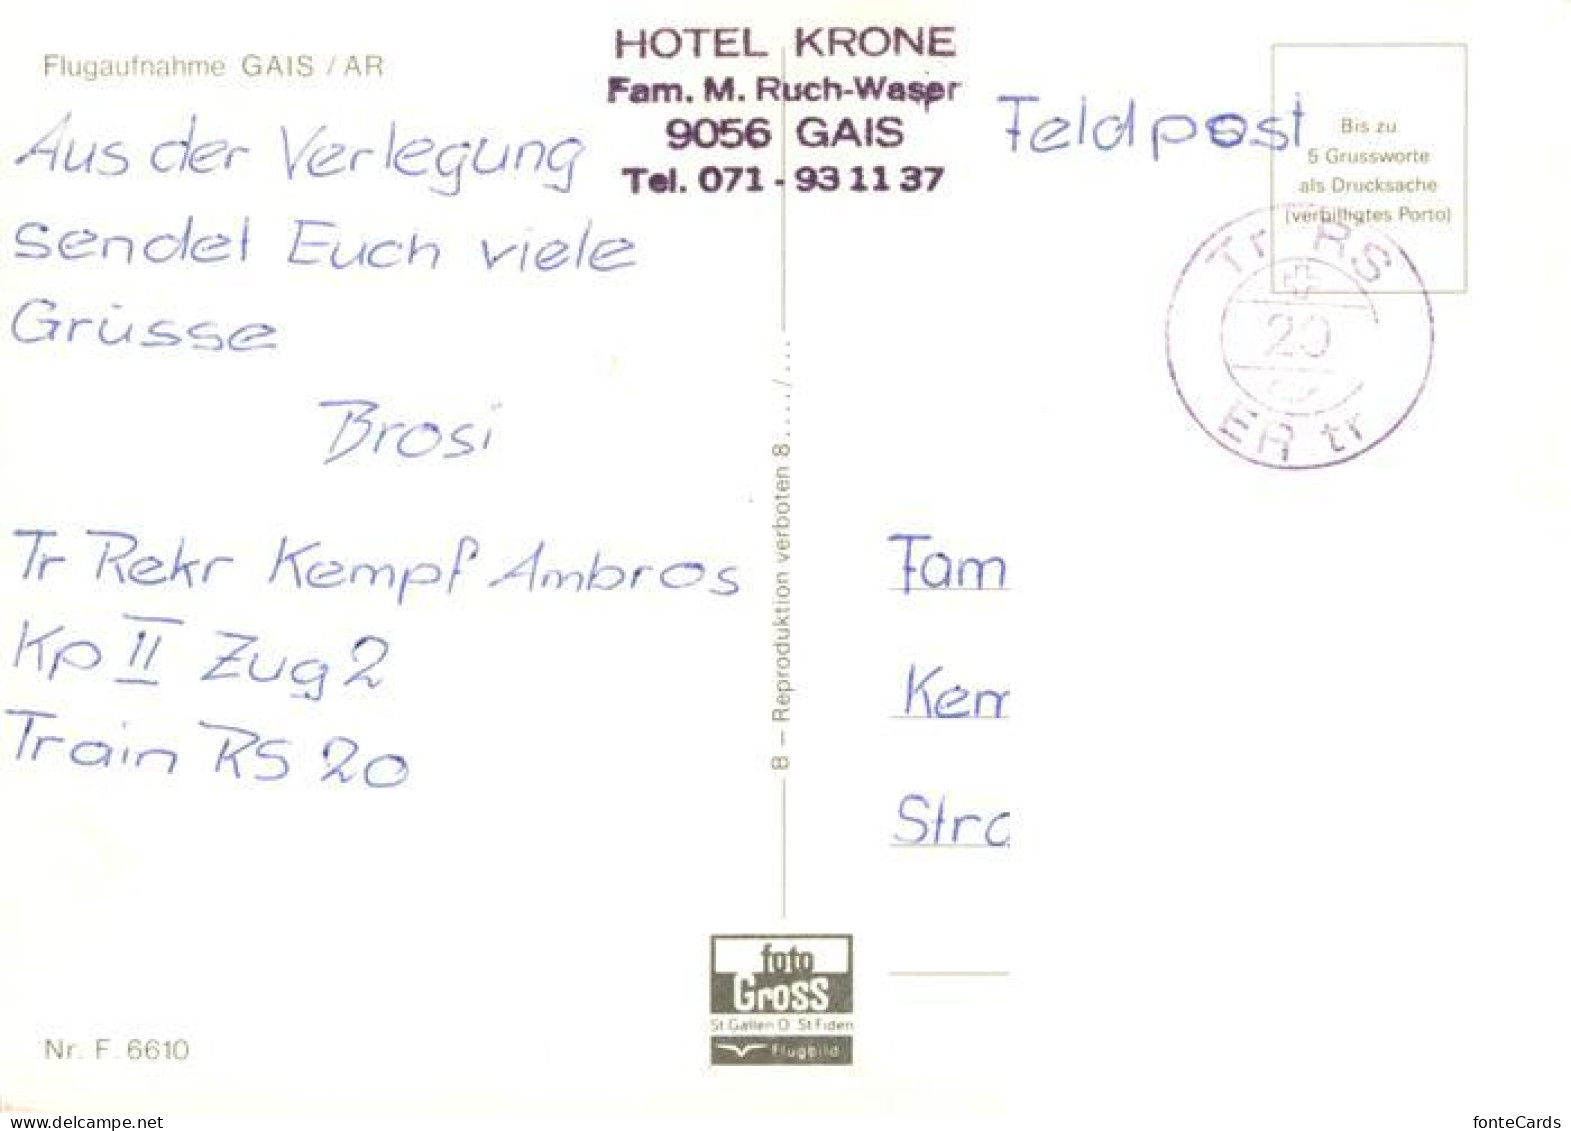 Flugaufnahme GAIS / AR
Aus der Verlegung
sendet Euch viele
Grüsse
Brosi
Tr Rekr Kempf Ambros
Kp II Zug 2
Train RS 20
Nr. F. 6610
HOTEL KRONE
Fam. M. Ruch-Waser
9056 GAIS
Tel. 071 - 93 11 37
B – Reproduktion verboten 8..../...
foto
Gross
St Gallen O St Fiden
Flugbild
Feldpost
Bis zu
5 Grussworte
als Drucksache
(verbilligtes Porto)
Tr RS
20
ER tr
Fam
Kem
Stra
delcampe.net
fonteCards